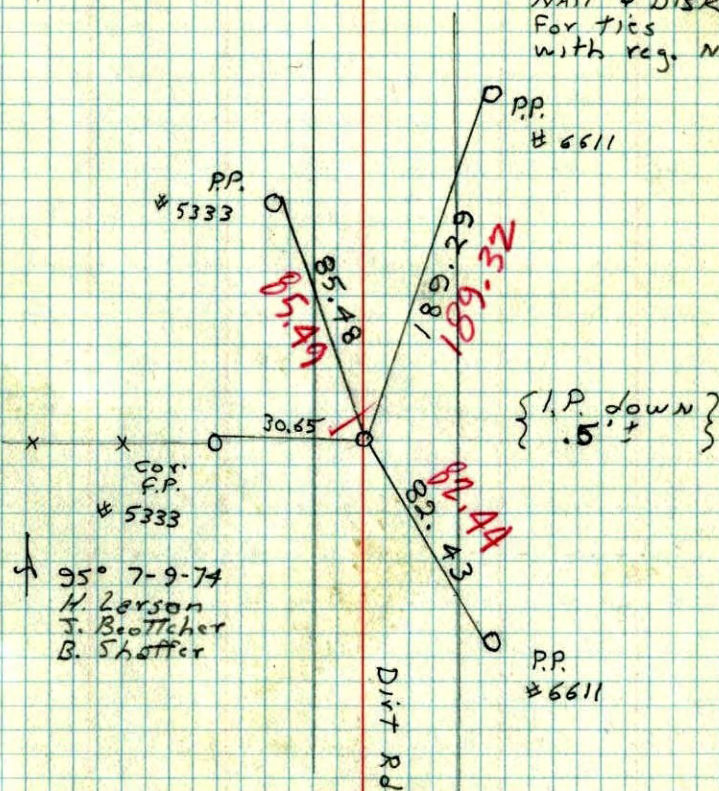 NAIL & DISK
For ties
with reg. N
P.P.
# 6611
P.P.
# 5333
85.48
85.49
189.29
189.32
30.65
{ I.P. down }
.5' ±
Cor.
F.P.
# 5333
82.44
82.43
95° 7-9-74
H. Larson
J. Beottcher
B. Shaffer
P.P.
# 6611
Dirt Rd